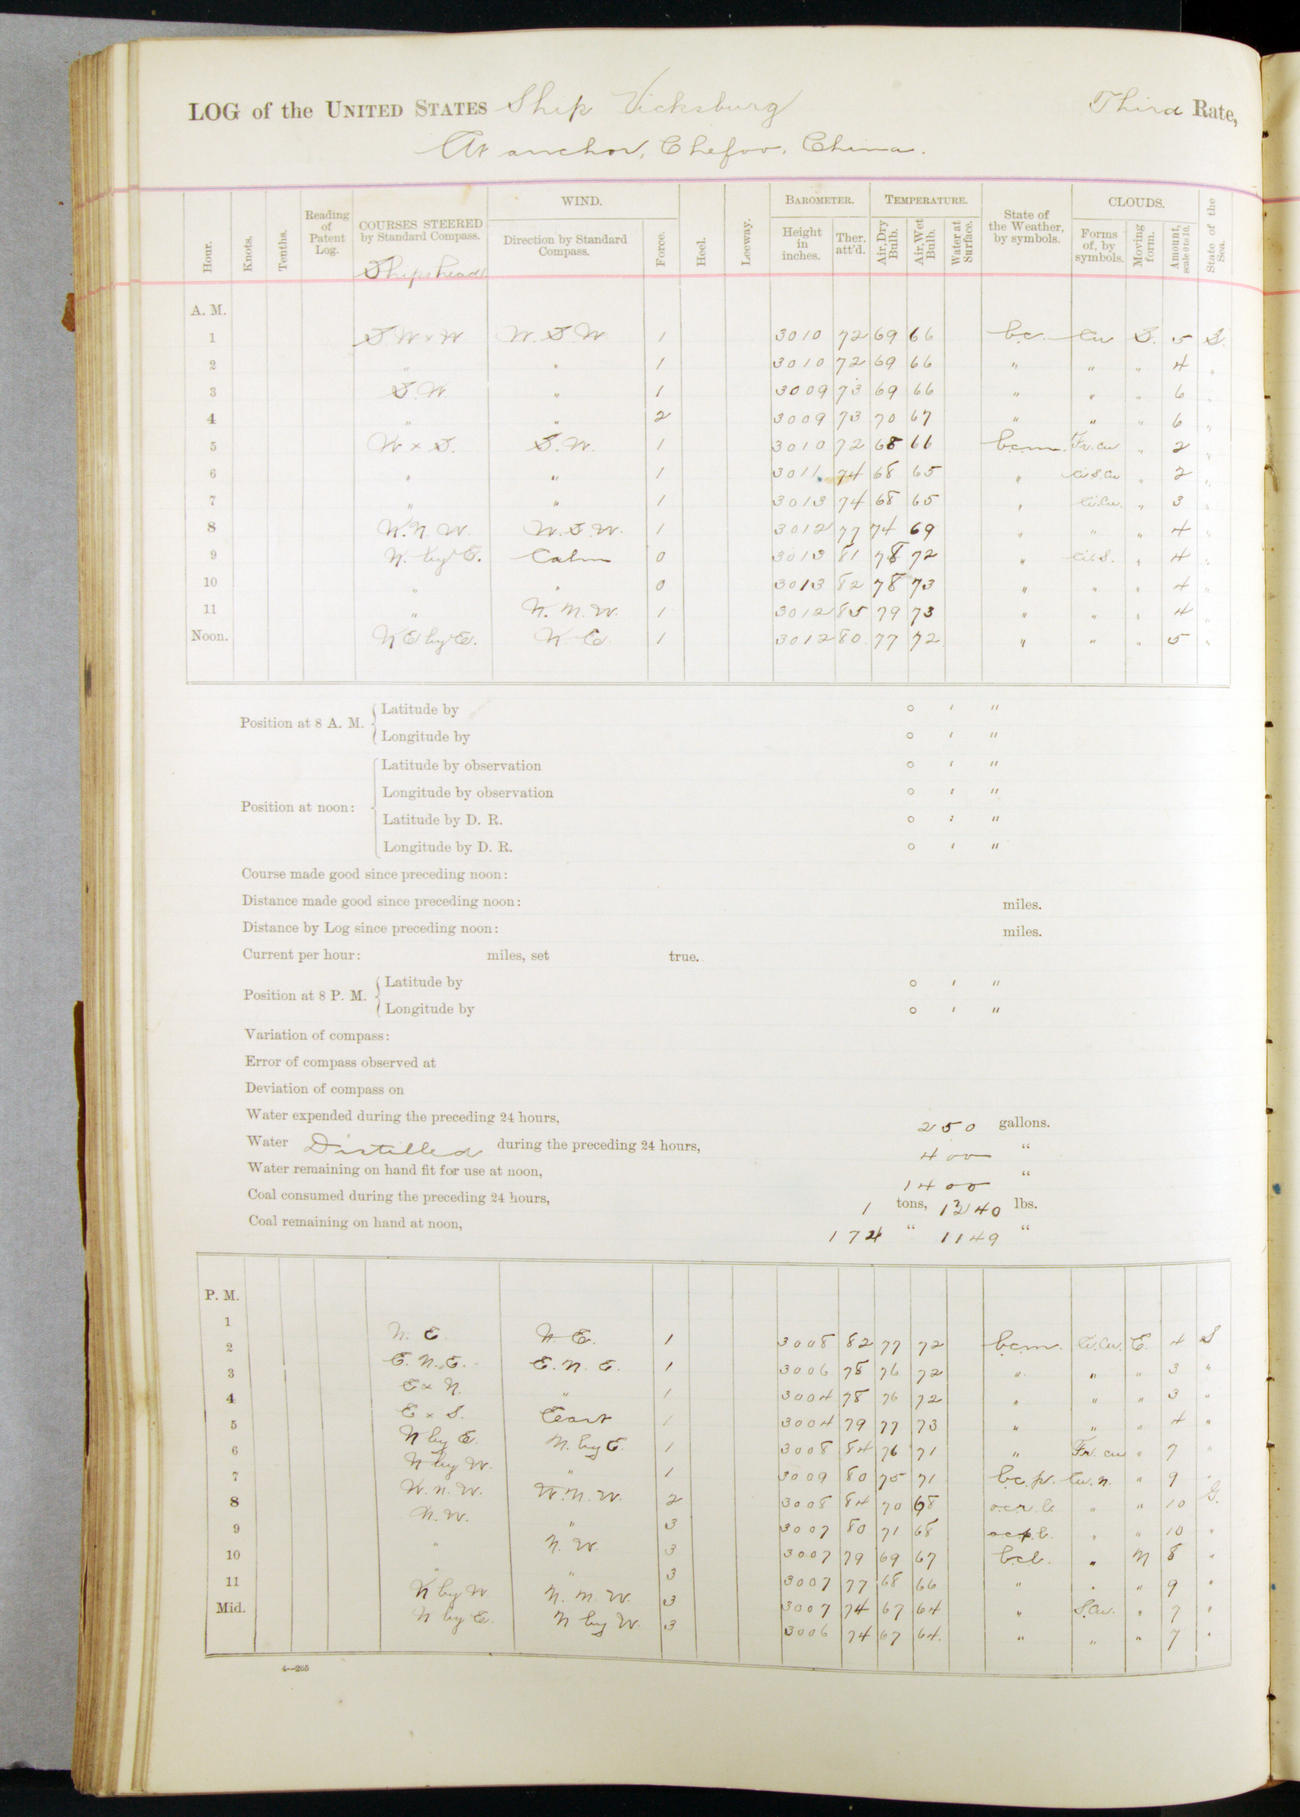 LOG of the UNITED STATES Ship Vicksburg Third Rate,
At anchor, Chefoo, China.
Hour. Knots. Tenths. Reading of Patent Log. COURSES STEERED by Standard Compass. WIND. Direction by Standard Compass. Force. Heel. Leeway. BAROMETER. Height in inches. Ther. att'd. TEMPERATURE. Air, Dry Bulb. Air, Wet Bulb. Water at Surface. State of the Weather, by symbols. CLOUDS. Forms of, by symbols. Moving form. Amount, scale 0 to 10. State of the Sea.
Ship's head
A. M.
1 S W x W W. S. W 1 3010 72 69 66 b.c. Cu S. 5 S.
2 " " 1 3010 72 69 66 " " " 4 "
3 S. W. " 1 3009 73 69 66 " " " 6 "
4 " " 2 3009 73 70 67 " " " 6 "
5 W x S. S. W. 1 3010 72 68 66 b.c.m. Fr. cu " 2 "
6 " " 1 3011 74 68 65 " " 2 "
7 " " 1 3013 74 68 65 " Ci.Cu. " 3 "
8 N. N. W. W. S. W. 1 3012 77 74 69 " " " 4 "
9 N. by E. Calm 0 3013 81 78 72 " Ci.S. " 4 "
10 " " 0 3013 82 78 73 " " " 4 "
11 " N. N. W. 1 3012 85 79 73 " " " 4 "
Noon. N E by E. N. E. 1 3012 80 77 72 " " " 5 "
Position at 8 A. M. Latitude by ° ' "
Longitude by ° ' "
Position at noon: Latitude by observation ° ' "
Longitude by observation ° ' "
Latitude by D. R. ° ' "
Longitude by D. R. ° ' "
Course made good since preceding noon:
Distance made good since preceding noon: miles.
Distance by Log since preceding noon: miles.
Current per hour: miles, set true.
Position at 8 P. M. Latitude by ° ' "
Longitude by ° ' "
Variation of compass:
Error of compass observed at
Deviation of compass on
Water expended during the preceding 24 hours, 250 gallons.
Water Distilled during the preceding 24 hours, 400 "
Water remaining on hand fit for use at noon, 1400 "
Coal consumed during the preceding 24 hours, 1 tons, 1240 lbs.
Coal remaining on hand at noon, 174 " 1149 "
P. M.
1 N. E. N. E. 1 3008 82 77 72 b.c.m. Ci.Cu. E. 4 S
2 E. N. E. E. N. E. 1 3006 78 76 72 " " " 3 "
3 E x N. " 1 3004 78 76 72 " " " 3 "
4 E x S. East 1 3004 79 77 73 " " " 4 "
5 N by E. N. by E. 1 3008 84 76 71 " Fr. cu " 7 "
6 N by W. " 1 3009 80 75 71 b.c.p. Cu. n. " 9 "
7 W. N. W. W. N. W. 2 3008 84 70 68 " " 10 G.
8 N. W. " 3 3007 80 71 68 " " 10 "
9 " N. W. 3 3007 79 69 67 b.c.l. " N 8 "
10 " " 3 3007 77 68 66 " " " 9 "
11 N by W N. N. W. 3 3007 74 67 64 " S.Cu. " 7 "
Mid. N by E. N by W. 3 3006 74 67 64. " " " 7 "
4—265